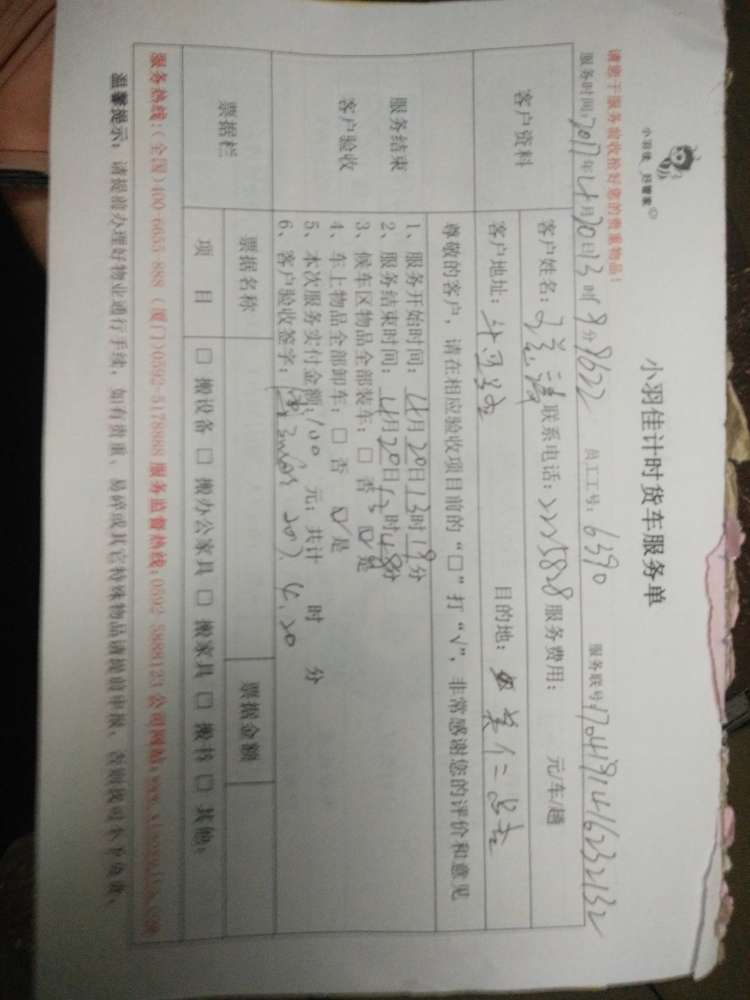 小羽佳 好管家
小羽佳计时货车服务单
请您于服务前收拾好您的贵重物品!
服务时间:2017年4月20日13时9分8622 员工工号:6390 服务联号:170419141623 2132
客户资料
客户姓名: 联系电话:2225828 服务费用: 元/车/趟
客户地址: 目的地:
尊敬的客户,请在相应验收项目前的“口”打“√”,非常感谢您的评价和意见
服务结束
客户验收
1、服务开始时间:4月20日13时19分
2、服务结束时间:4月20日13时48分
3、候车区物品全部装车:□ 否 ☑是
4、车上物品全部卸车:□ 否 ☑是
5、本次服务实付金额:100 元;共计 时 分
6、客户验收签字: 2017.4.20
票据栏
票据名称 票据金额
项 目 □ 搬设备 □ 搬办公家具 □ 搬家具 □ 搬书 □ 其他:
服务热线:(全国)400-6655-888 (厦门)0592-5178888 服务监督热线:0592 5888123 公司网站:www.xiaoyujia.com
温馨提示:请提前办理好物业通行手续,如有贵重、易碎或其它特殊物品请提前申报,否则我司不予负责。